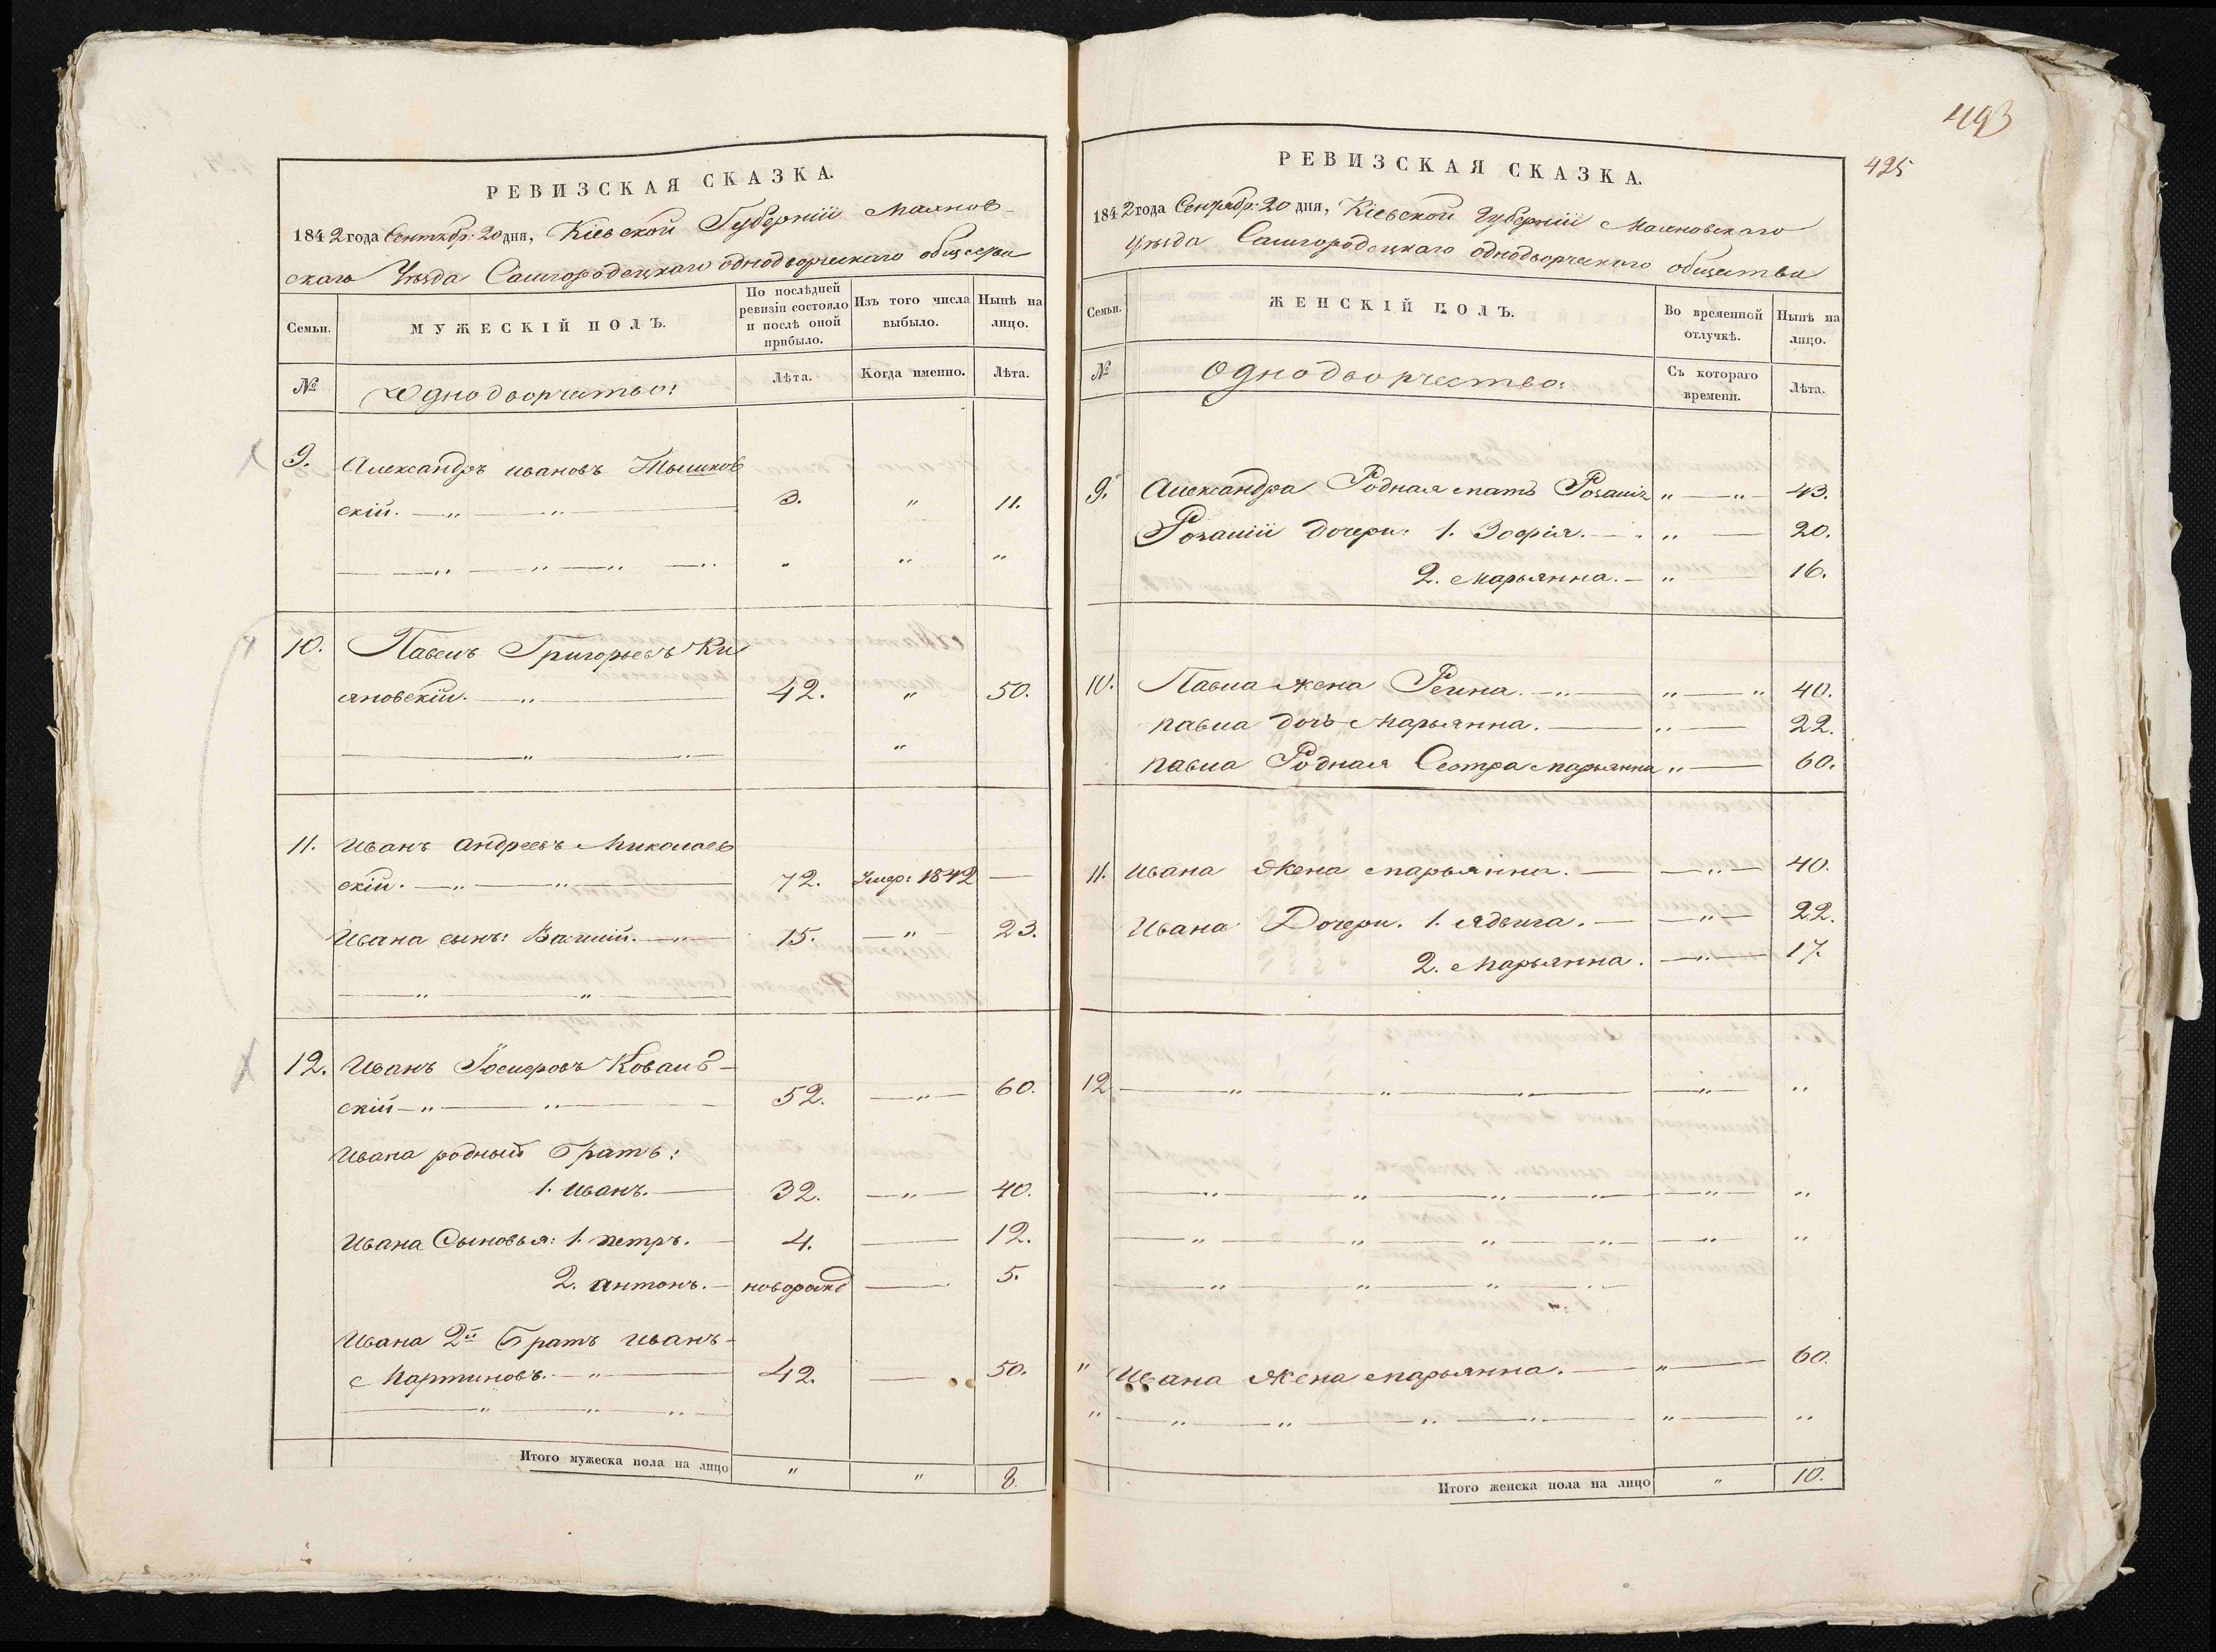 РЕВИЗСКАЯ СКАЗКА.
1842 года Сентябр: 20 дня, Кіевской Губерніи Махнов-
скаго Уѣзда Самгородецкаго однодворческаго общества
Семьи. МУЖЕСКІЙ ПОЛЪ. По послѣдней ревизіи состояло и послѣ оной прибыло. Изъ того числа выбыло. Нынѣ на лицо.
№ Однодворчество: Лѣта. Когда именно. Лѣта.
9. Александръ ивановъ
скій. — „ — „ — 3. „ 11.
10. Павелъ Григорьевъ Ки
яновскій. — „ — 42. „ 50.
11. Иванъ андреевъ Миколаев
скій. — „ — „ — 72. Умер: 1842 —
Ивана сынъ: — „ — 15. — „ — 23.
12. Иванъ Іосифовъ Ковалв-
скій — „ — „ — 52. — „ — 60.
Ивана родный братъ:
1. иванъ. — 32. — „ — 40.
Ивана Сыновья: 1. петръ. — 4. — 12.
2. антонъ. — новорожд — 5.
Ивана 2й братъ иванъ-
Мартиновъ. — „ — 42. — 50.
Итого мужеска пола на лицо „ „ 8.
493
425
РЕВИЗСКАЯ СКАЗКА.
1842 года Сентябр: 20 дня, Кіевской Губерніи Махновскаго
Уѣзда Самгородецкаго однодворческаго общества
Семьи. ЖЕНСКІЙ ПОЛЪ. Во временной отлучкѣ. Нынѣ на лицо.
№ Однодворчество: Съ котораго времени. Лѣта.
9. Александра Родная мать „ — „ — 43.
Розаліи дочери: 1. Зофія. — „ „ — 20.
2. Марьянна. — „ — 16.
10. Павла жена Регина. — „ — „ — „ 40.
павла дочь Марьянна. — „ — 22.
павла Родная Сестра марьянна „ — 60.
11. Ивана жена марьянна. — — „ — 40.
Ивана Дочери. 1. ядвига. — — „ — 22.
2. Марьянна. — „ — 17.
12 — „ — „ — „ — — „ — „
„ Ивана жена марьянна. — „ — 60.
Итого женска пола на лицо „ 10.